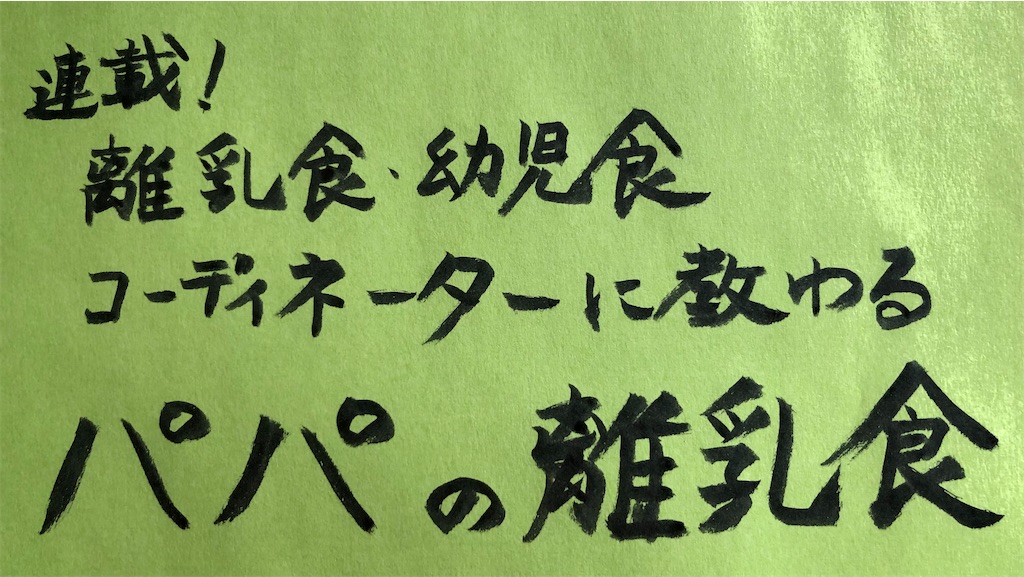 連載!
離乳食・幼児食
コーディネーターに教わる
パパの離乳食